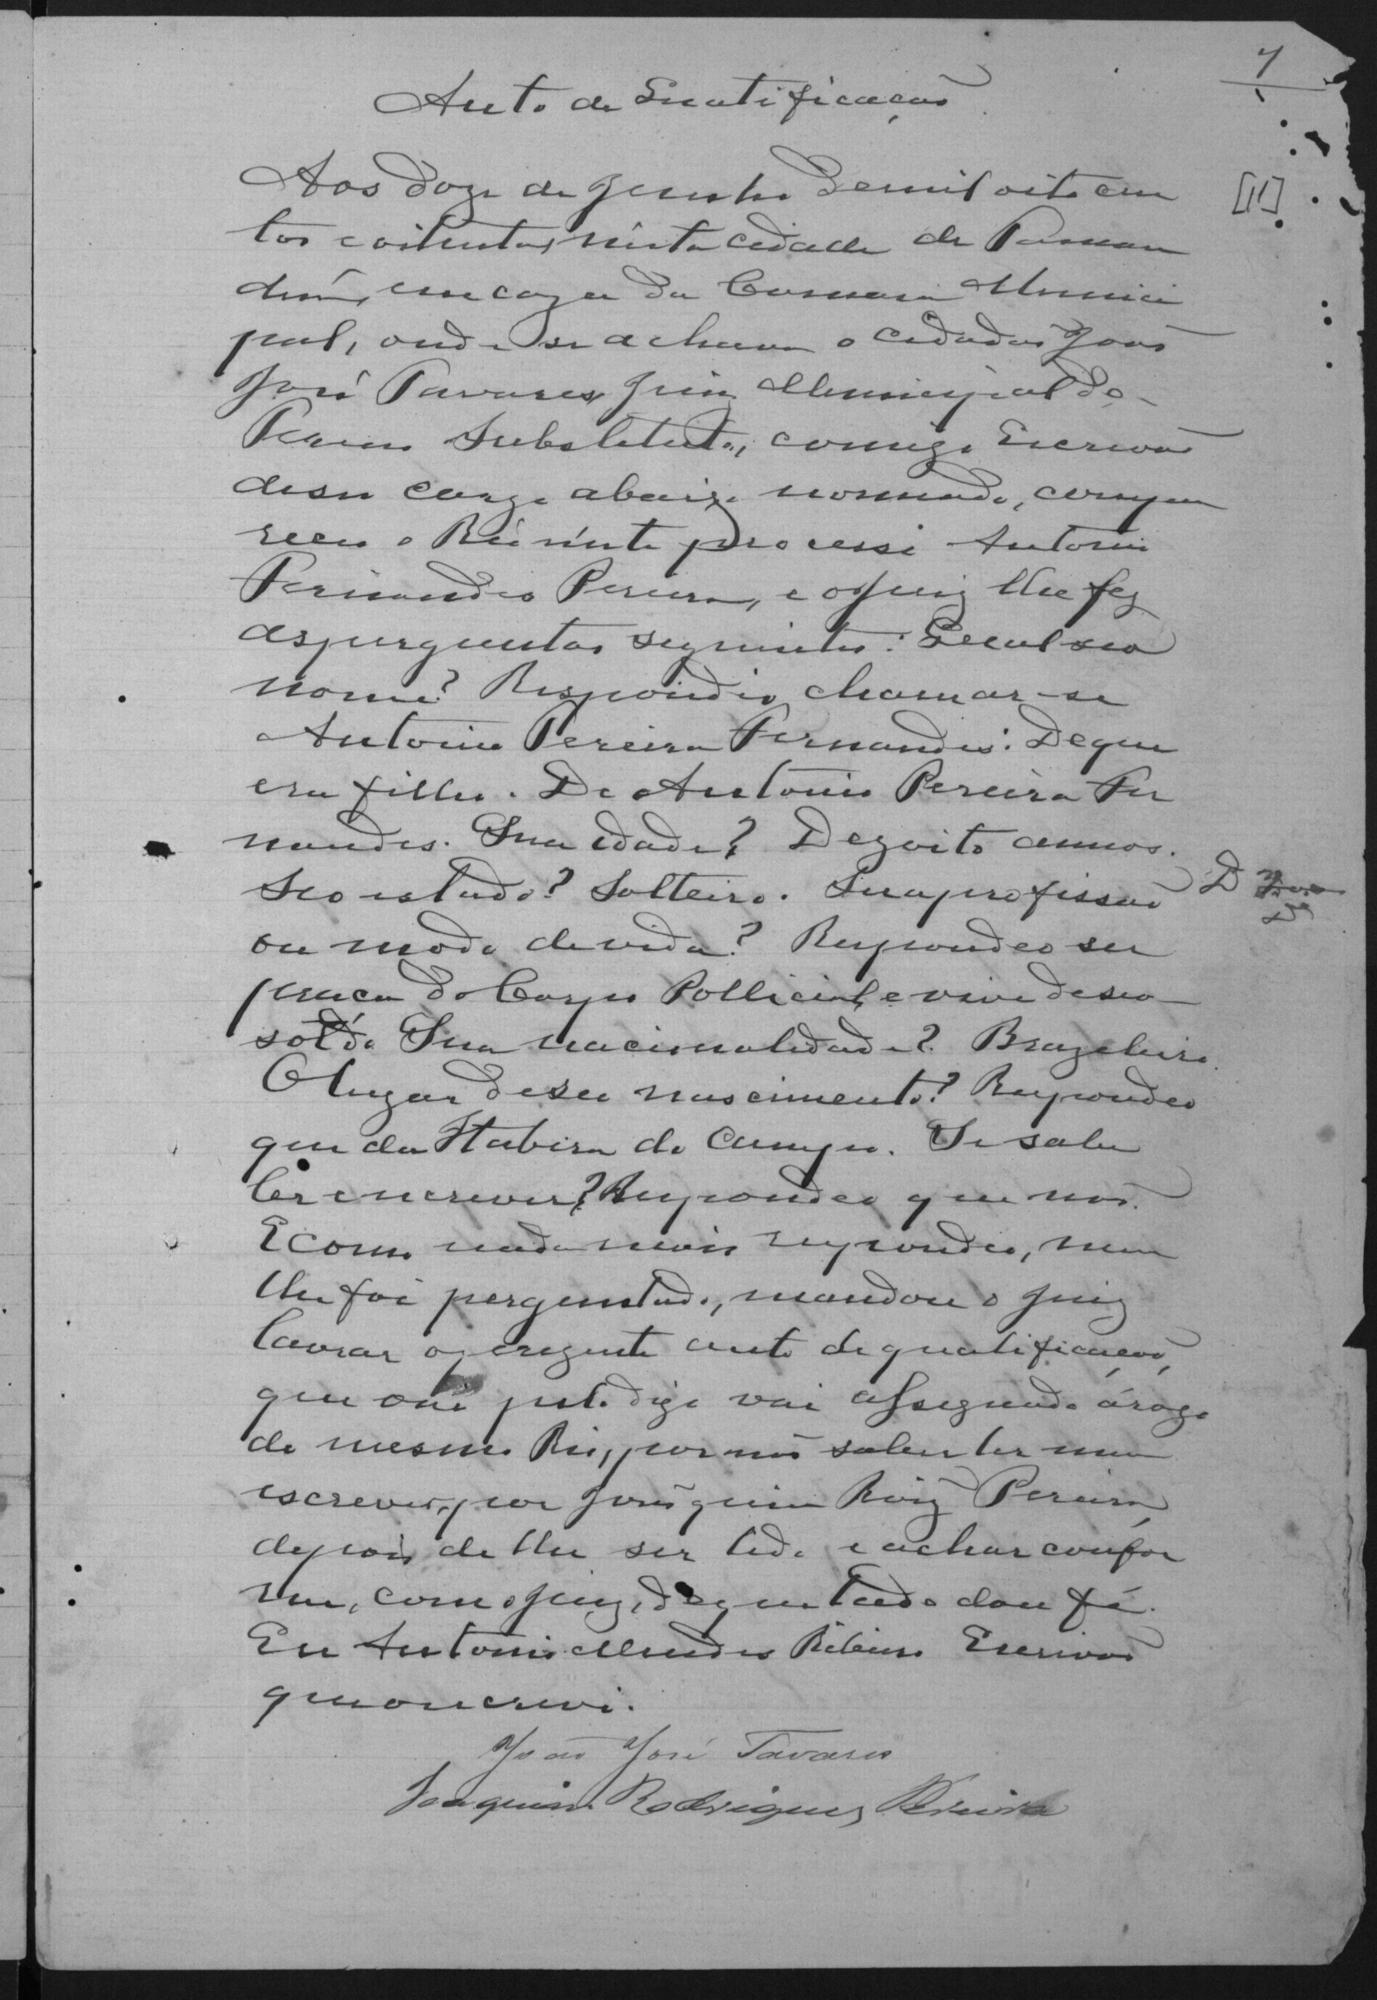 7
Auto de Qualificação
[11]
Aos doze de Junho de mil oito cen
tos e oitenta, nésta cidade de
em caza da Camara Munici
pal, onde se achava o cidadão João
José Tavares Juiz Municipal do
Termo Substituto, comigo Escrivão
de seu cargo abaixo nomeado, compa
receu o Réo nésta processo Antonio
Fernandes Pereira, e o Juiz lhe fez
as perguntas seguintes: Qual seo
nome? Respondeo chamar-se
Antonio Pereira Fernandes: De quem
era filho. De Antonio Pereira Fer
nandes. Sua idade? Dezoito annos.
Seo estado? Solteiro. Sua profissão
ou modo de vida? Respondeo ser
praça do Corpo Pollicial, e vive de seo
soldo Sua nacionalidade? Brazileiro.
O lugar de seu nascimento? Respondeo
que da Itabira do Campo. Se sabe
ler e escrever? Respondeo que não.
E como nada mais respondeo, nem
lhe foi perguntado, mandou o Juiz
lavrar o prezente auto de qualificação,
que vai assignado á rogo
do mesmo Réo, por não saber ler nem
escrever, por Joaquim Roiz Pereira,
depois de lhe ser lido e achar confor
me, com o Juiz, do que tudo dou fé.
Eu Antonio Mendes Ribeiro Escrivão
que o escrevi.
João José Tavares
Joaquim Rodrigues Pereira